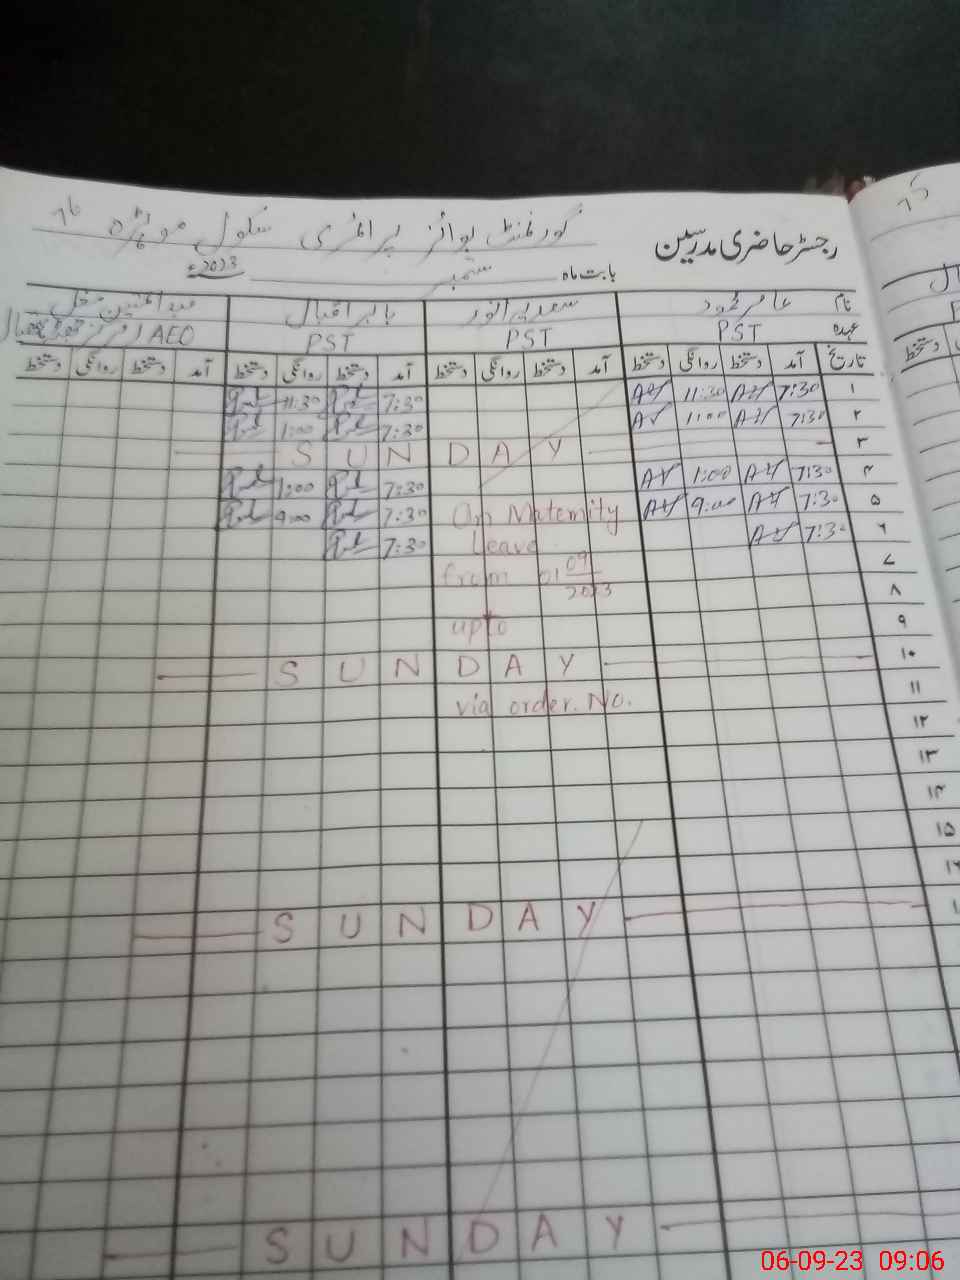 رجسٹر حاضری مدرسین گورنمنٹ بوائز پرائمری سکول موہڑہ ۷۶
بابت ماہ ستمبر 2023ء
نام عامر محمود سعدیہ انور بابر اقبال عبدالمتین مغل
عہدہ PST PST PST AEO
تاریخ آمد دستخط روانگی دستخط آمد دستخط روانگی دستخط آمد دستخط روانگی دستخط آمد دستخط روانگی دستخط
۱ 7:30 11:30 7:30 11:30
۲ 7:30 11:00 7:30 1:00
۳ SUNDAY
۴ 7:30 1:00 7:30 1:00
۵ 7:30 9:00 On Maternity 7:30 9:00
۶ 7:30 Leave 7:30
۷ from 01 09 2023
۸
۹ upto
۱۰ SUNDAY
۱۱ via order. No.
۱۲
۱۳
۱۴
۱۵
SUNDAY
SUNDAY
06-09-23 09:06